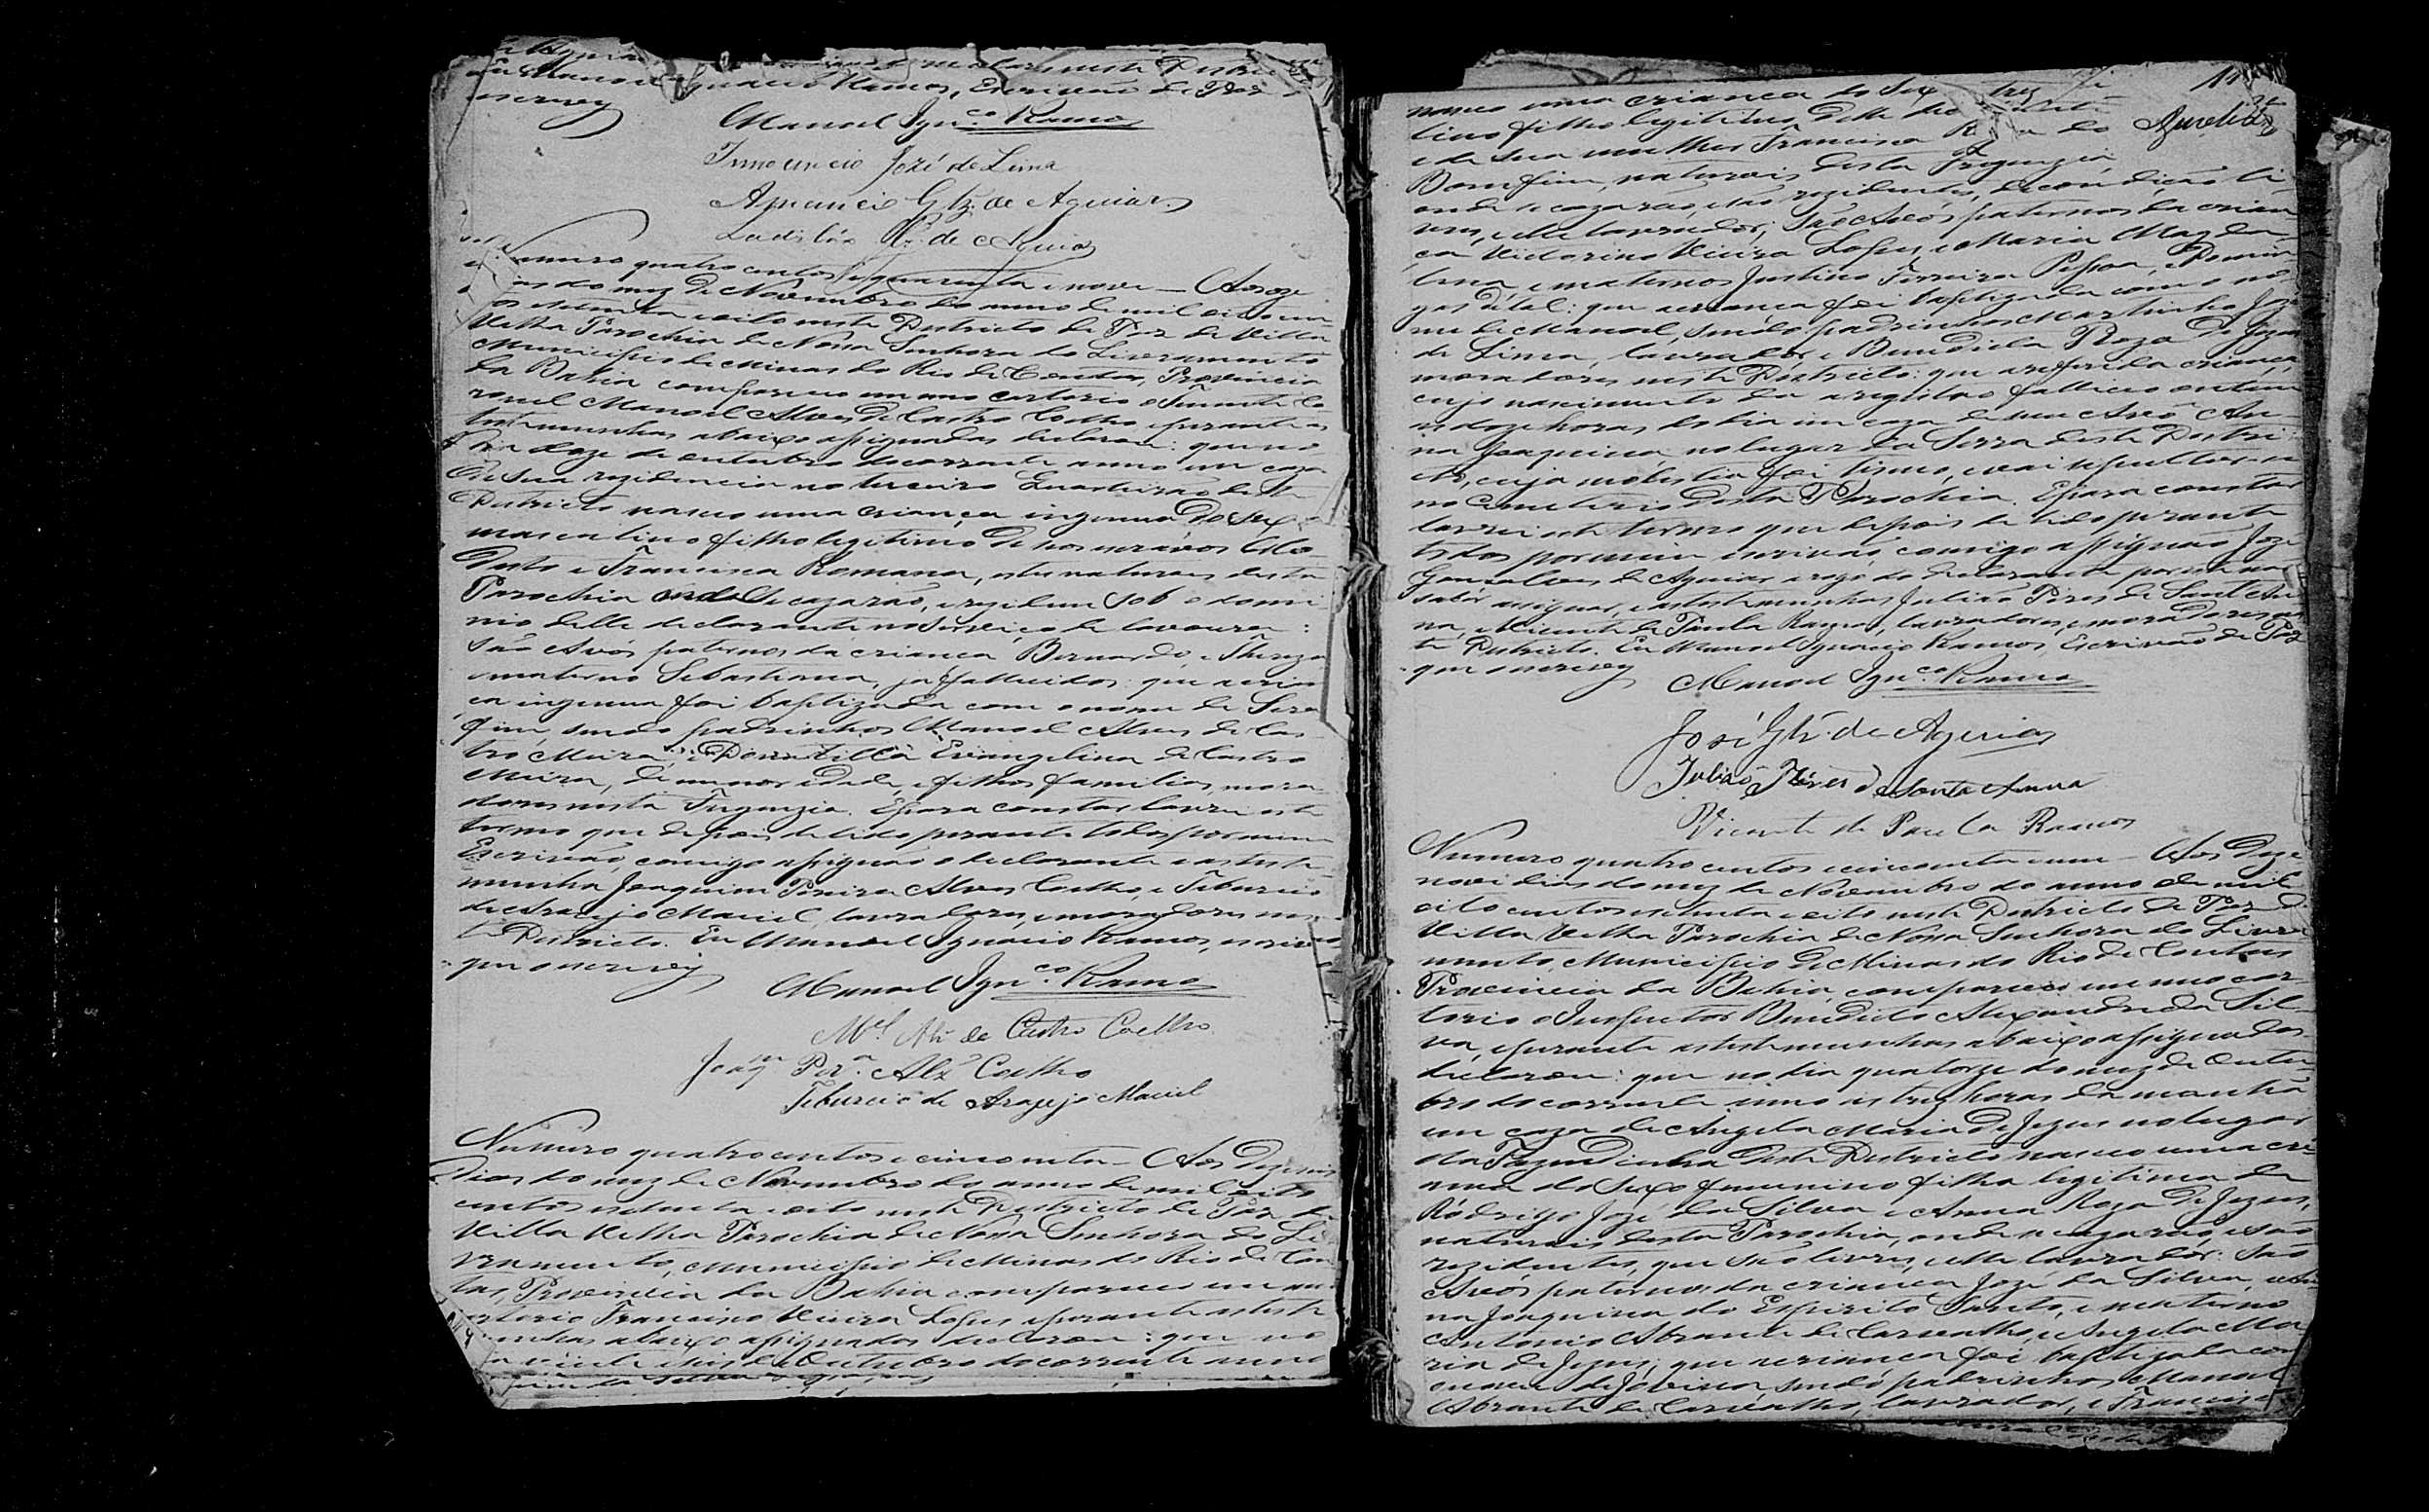 Ignacio Ramos, Escrivão de Paz
escrevy
Manoel Ign.co Ramos
Innocencio José de Lima
Amancio Glz. de Aguiar
Ladisláo de Aguiar
Numero quatro centos e quarenta e nove — Aos onze
dias do mez de Novembro do anno de mil oito cen-
tos setenta e oito neste Districto de Paz de Villa
Velha Parochia de Nossa Senhora do Livramento
Municipio de Minas do Rio de Contas, Provincia
da Bahia compareceo em meo cartorio o Tenente Co
ronel Manoel Alves de Castro Coelho e perante as
testemunhas abaixo assignadas declarou: que no
dia doze de outubro do corrente anno em caza
de sua rezidencia no terceiro Quarteirão deste
Districto nasceo uma criança ingenua do sexo
masculino filho legitimo de nos escravos
e Francisca Romana, estes naturaes desta
Parochia onde se cazarão, e rezidem sob o domi-
nio delle declarante no serviço de lavoura:
são Avós paternos da criança Bernardo, e Thereza
e materno Sebastiana, já fallecidos: que a crian
ça ingenua foi baptizada com o nome de Sera
fim sendo padrinhos Manoel Alves de Cas
tro Meira, e Domitilla Evangelina de Castro
Meira, de menor idade, e filhos familias, mora-
dores nesta Freguezia. E para constar lavrei este
termo que depois de lido perante todos por mim
Escrivão, comigo assignão o declarante e as teste-
munha Joaquim Pereira Alves Coelho, e Tiburcio
de Araujo Maciel, lavradores, e moradores nes-
te Districto. Eu Manoel Ignacio Ramos, escrivão
que o escrevy
Manoel Ign.co Ramos
M.el Alz de Castro Coelho
Joaq.m Per.a Alz Coelho
Tiburcio de Araujo Maciel
Numero quatro centos e cincoenta — Aos dezeseis
dias do mez de Novembro do anno de mil oito
centos setenta e oito neste Districto de Paz de
Villa Velha Parochia de Nossa Senhora do Li
vramento, Municipio de Minas do Rio de Con
tas, Provincia da Bahia compareceo em meo
cartorio Francisco Vieira Lopes e perante as teste
munhas abaixo assignadas declarou: que no
dia vinte e seis de Outubro do corrente anno
nasceo uma criança do sexo
lino filho legitimo delle
e de sua mulher Francisca do
Aurelio
Bomfim, naturais desta Freguezia
onde se cazarão, e são rezidentes, de condição li
vres, e elle lavrador; São Avós paternos da crian
ça Victorino Vieira Lopes, e Maria Magda
lena e maternos Justino Ferreira Pessoa, e Domin
gas de tal: que a criança foi baptizada com o no
me de Manoel, sendo padrinhos Martinho José
de Lima, lavrador e Benedicta Roza de Jezus
moradores neste Districto: que a referida criança
cujo nascimento da a registro falleceo ontem
as doze horas do dia em caza de seu Avó An
na Joaquina, no lugar da Serra deste Distri
cto, cuja molestia foi e vai sepultar-se
no Cemiterio desta Parochia. E para constar
lavrei este termo que depois de lido perante
todos por mim escrivão comigo assignão José
Gonsalves de Aguiar a rogo do declarante por não
saber assignar, e as testemunhas Julião Pires de Sant'An
na, e Vicente de Paula Ramos, lavradores, e moradores nes
te Districto. Eu Manoel Ignacio Ramos, Escrivão de Paz
que o escrevy
Manoel Ign.co Ramos
José Glz. de Aguiar
Julião Pires de Santa Anna
Vicente de Paula Ramos
Numero quatro centos e cincoenta e um — Aos deze
nove dias do mez de Novembro do anno de mil
oito centos setenta e oito neste Districto de Paz de
Villa Velha Parochia de Nossa Senhora do Livra
mento, Municipio de Minas do Rio de Contas
Provincia da Bahia, compareceo em meo car-
torio o Inspector Benedicto Alexandre da Sil-
va, e perante as testemunhas abaixo assignadas
declarou: que no dia quatorze do mez de Outu-
bro do corrente anno as trez horas da manhã
em caza de Angela Maria de Jezus no lugar
da Fazendinha deste Districto nasceo uma cri
ança do sexo femenino filha legitima de
Rodrigo José da Silva e Anna Roza de Jezus,
naturais desta Parochia, onde se cazarão, e são
rezidentes, que são livres, e elle lavrador: São
Avós paternos da criança José da Silva, e An
na Joaquina do Espirito Santo, e materno
Antonio Abrante de Carvalho, e Angela Ma
ria de Jezus; que a criança foi baptizada com
o nome de Jovina, sendo padrinhos Manoel
Abrante de Carvalho, lavrador, e Francisca